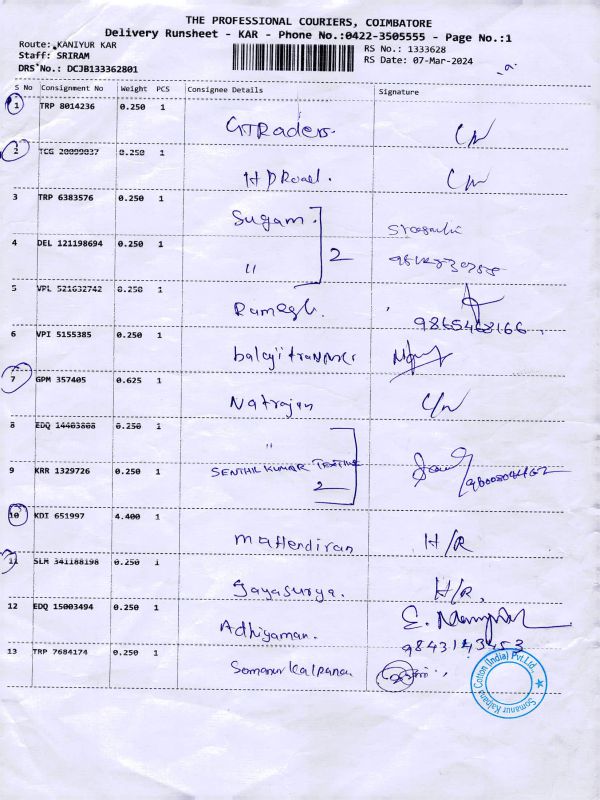 THE PROFESSIONAL COURIERS, COIMBATORE
Delivery Runsheet - KAR - Phone No.:0422-3505555 - Page No.:1
Route: KANIYUR KAR RS No.: 1333628
Staff: SRIRAM RS Date: 07-Mar-2024
DRS No.: DCJB133362801
S No Consignment No Weight PCS Consignee Details Signature
1 TRP 8014236 0.250 1
GTRaders.
2 TCG 20099837 0.250 1
H D Road.
3 TRP 6383576 0.250 1
Sugam.
4 DEL 121198694 0.250 1
" 2
5 VPL 521632742 0.250 1
Ramesh.
9865468166
6 VPI 5155385 0.250 1
balaji
7 GPM 357405 0.625 1
Natrajan
8 EDQ 14403808 0.250 1
"
9 KRR 1329726 0.250 1
SENTHIL KUMAR TEXTILE
2
10 KDI 651997 4.400 1
Mahendiran H/R
11 SLM 341188198 0.250 1
Jayasurya. H/R.
12 EDQ 15003494 0.250 1
Adhiyaman.
9843143453
13 TRP 7684174 0.250 1
Somanur Kalpana
Somanur Kalpana Cotton (India) Pvt.Ltd.